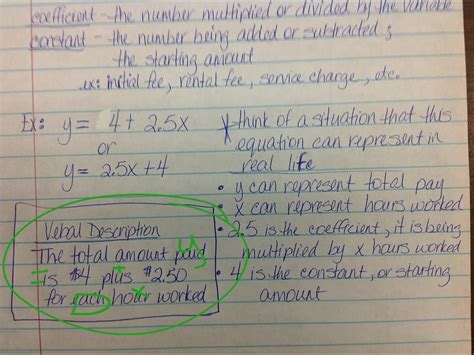 coefficient - the number multiplied or divided by the variable
constant - the number being added or subtracted;
the starting amount
ex: initial fee, rental fee, service charge, etc.
Ex: y = 4 + 2.5x
or
y = 2.5x + 4
* think of a situation that this
equation can represent in
real life
• y can represent total pay
• x can represent hours worked
• 2.5 is the coefficient, it is being
multiplied by x hours worked
• 4 is the constant, or starting
amount
Vebal Description
The total amount paid
is $4 plus $2.50
for each hour worked